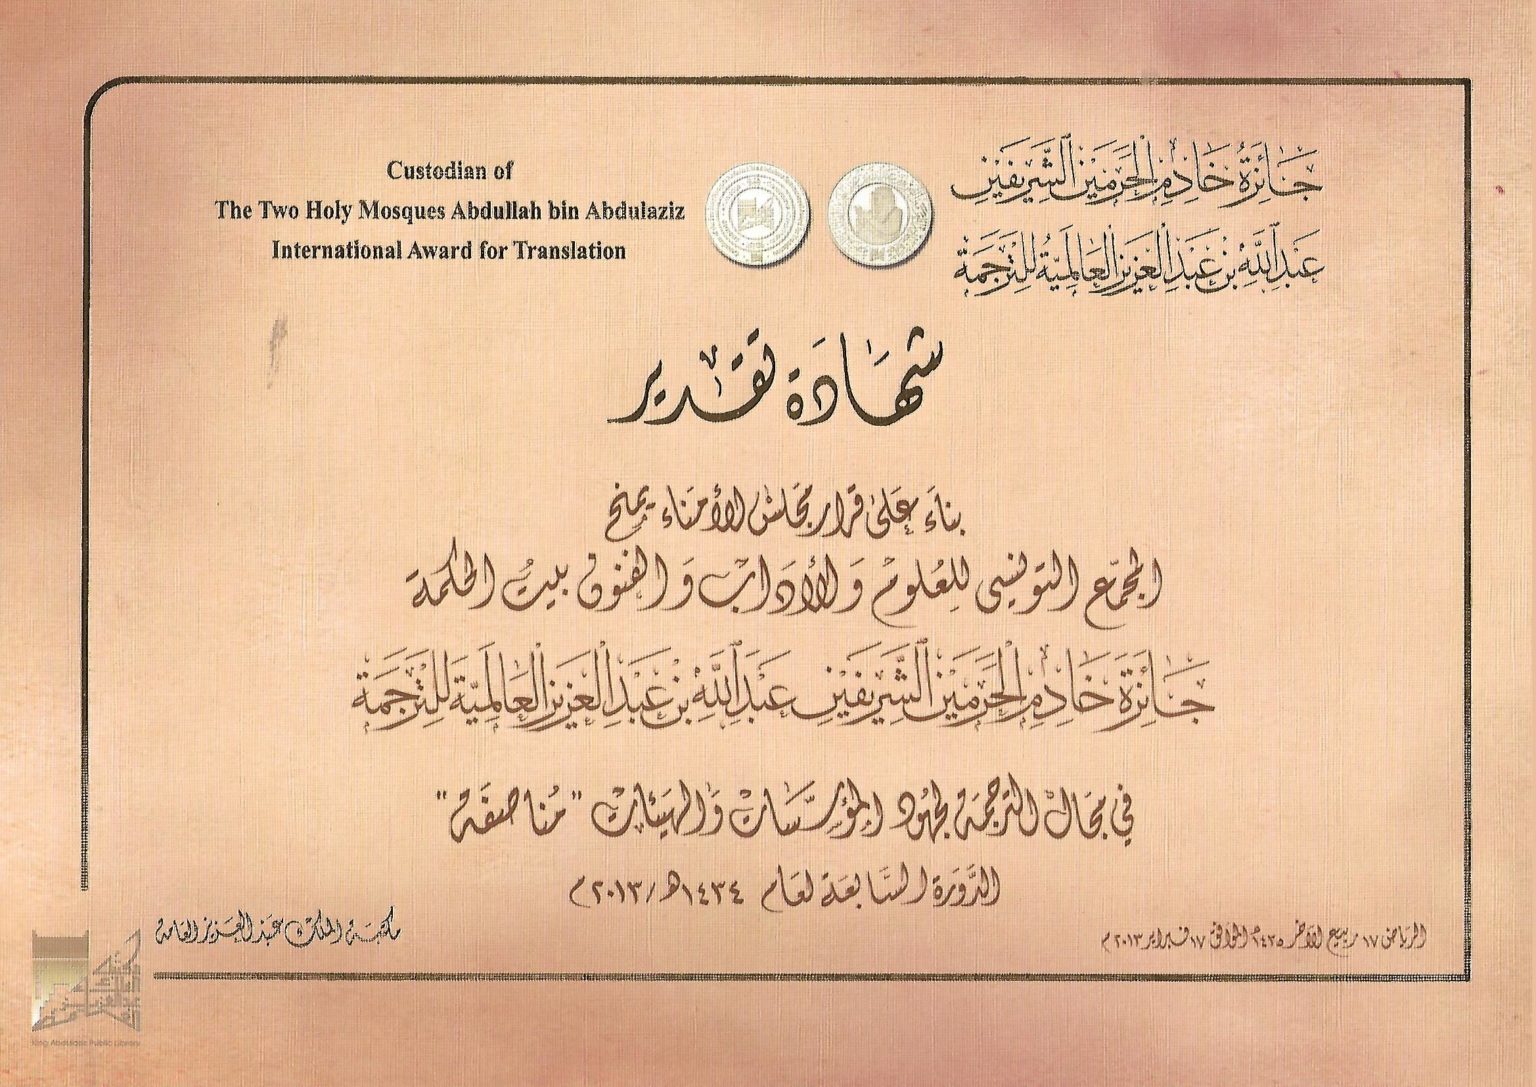 Custodian of
The Two Holy Mosques Abdullah bin Abdulaziz
International Award for Translation
جَائِزَةُ خَادِمِ الْحَرَمَيْنِ الشَّرِيفَيْنِ
عَبْدِ اللَّهِ بْنِ عَبْدِ الْعَزِيزِ الْعَالَمِيَّةُ لِلتَّرْجَمَةِ
شهَادَة تقدير
بناءً عَلى قرار مَجلسْ الأمنَاء يمنح
المجمّع التونسي للعُلومْ وَالأدَابْ وَالفنون بيتُ الحكمة
جَائِزَةَ خَادِمِ الْحَرَمَيْنِ الشَّرِيفَيْنِ عَبْدِ اللَّهِ بْنِ عَبْدِ الْعَزِيزِ الْعَالَمِيَّةَ لِلتَّرْجَمَةِ
في مجَالْ الترجمَة لجهُود المؤسَّسَاتْ وَالهَيئاتْ "مُناصفَة"
الدَّورَة السَّابعَة لعَام ١٤٣٤هـ/٢٠١٣م
الرياض ١٧ ربيع الآخر ١٤٣٥ الموافق ١٧ فبراير ٢٠١٣م
مكتبَة الملك عَبْد العَزيز العَامة
King Abdulaziz Public Library